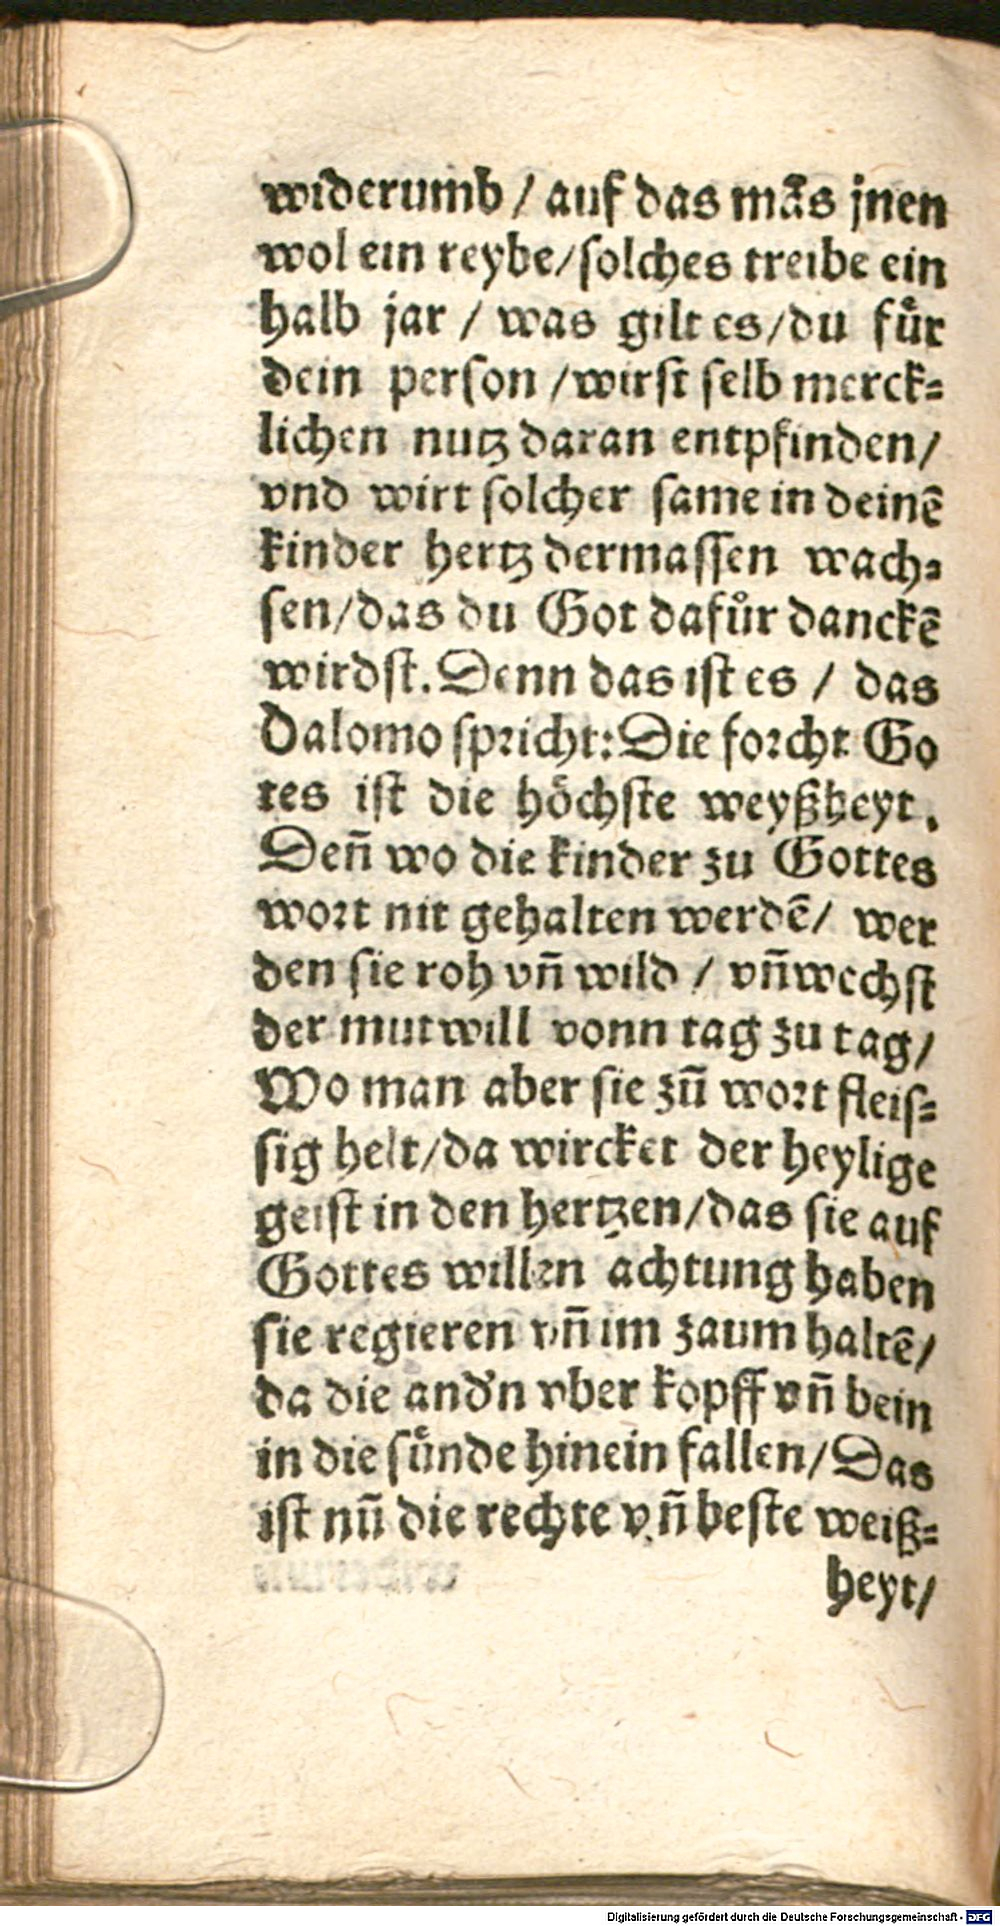 widerumb / auf das mãs jnen
wol ein reybe/solches treibe ein
halb jar / was gilt es/du fuͤr
dein person /wirst selb merck=
lichen nutz daran entpfinden/
vnd wirt solcher same in deinẽ
kinder hertz dermassen wach=
sen/das du Got dafuͤr danckẽ
wirdst. Denn das ist es / das
Dalomo spricht: Die forcht Go
tes ist die hoͤchste weyßheyt.
Deñ wo die kinder zu Gottes
wort nit gehalten werdẽ/ wer
den sie roh vñ wild / vñ wechst
der mutwill vonn tag zu tag/
Wo man aber sie zũ wort fleis=
sig helt/da wircket der heylige
geist in den hertzen/das sie auf
Gottes willen achtung haben
sie regieren vñ im zaum haltẽ/
da die and'n vber kopff vñ bein
in die suͤnde hinein fallen/Das
ist nũ die rechte vñ beste weiß=
heyt/
Digitalisierung gefördert durch die Deutsche Forschungsgemeinschaft - DFG